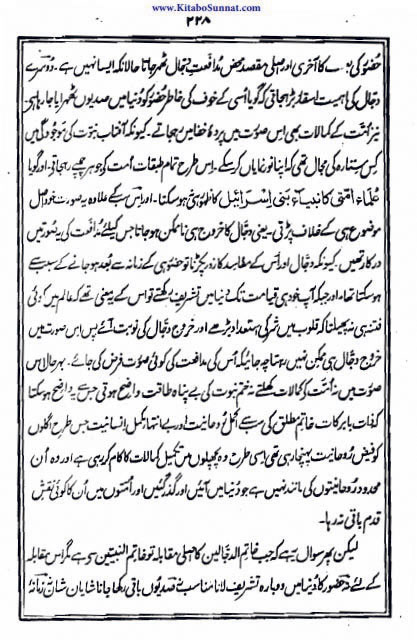 www.KitaboSunnat.com
۲۲۸
حضور کی کا آخری اور اصلی مقصد محض مدافعتِ دجال ٹھہر جاتا حالانکہ ایسا نہیں ہے۔ دوسرے
دجال کی اہمیت اسقدر بڑھ جاتی کہ گویا اُسی کے خوف کی خاطر حضور کو دنیا میں صدیوں ٹھہرایا جا رہا ہے
نیز اُمت کے کمالات بھی اس صورت میں پردۂ خفا میں رہجاتے۔ کیونکہ آفتابِ نبوت کی موجودگی میں
کِس ستارہ کی مجال تھی کہ اپنا نور نمایاں کر سکے۔ اس طرح تمام طبقاتِ اُمت کے جوہر چھپے رہجاتے اور گویا
عُلماءُ اُمتی کَاَنبیاءِ بنی اسرائیل کا ظہور ہی نہ ہوسکتا۔ اور اس کے علاوہ یہ صورت خود اصل
موضوع ہی کے خلاف پڑتی۔ یعنی دجال کا خروج ہی ناممکن ہو جاتا جس کیلئے مدافعت کی یہ صورتیں
درکار تھیں۔ کیونکہ دجال اور اُس کے مفاسد کا زور پکڑنا تو حضور ہی کے زمانہ سے بُعد ہو جانے کے سبب سے
ہو سکتا تھا، اور جبکہ آپ خود ہی قیامت تک دنیا میں تشریف رکھتے تو اس کے یہ معنی تھے کہ عالم میں کوئی
فتنہ ہی نہ پھیلتا کہ قلوب میں شر کی استعداد بڑھے اور خروجِ دجال کی نوبت آئے پس اس صورت میں
خروجِ دجال ہی ممکن نہیں رہتا چہ جائیکہ اُس کی مدافعت کی کوئی صورت فرض کی جائے۔ بہرحال اس
صورت میں نہ اُمت کے کمالات کھلتے نہ ختم نبوت کی بے پناہ طاقت واضح ہوتی جس سے یہ واضح ہو سکتا
کہ ذاتِ بابرکات خاتمِ مطلق کی سب سے اکمل روحانیت اور بے انتہا مکمل انسانیت جس طرح اگلوں
کو فیضِ روحانیت پہنچا رہی تھی اسی طرح وہ پچھلوں میں تکمیلِ کمالات کا کام کر رہی ہے اور وہ اُن
محدود روحانیتوں کی مانند نہیں ہے جو دُنیا میں آئیں اور گذر گئیں اور اُمتوں میں اُن کا کوئی نقشِ
قدم باقی نہ رہا۔
لیکن پھر سوال یہ ہے کہ جب خاتم الدجالین کا اصلی مقابلہ تو خاتم النبیین سے ہے مگر اس مقابلہ
کے لئے نہ حضور کا دُنیا میں دوبارہ تشریف لانا مناسب نہ صدیوں باقی رکھا جانا شایانِ شان نہ زمانۂ